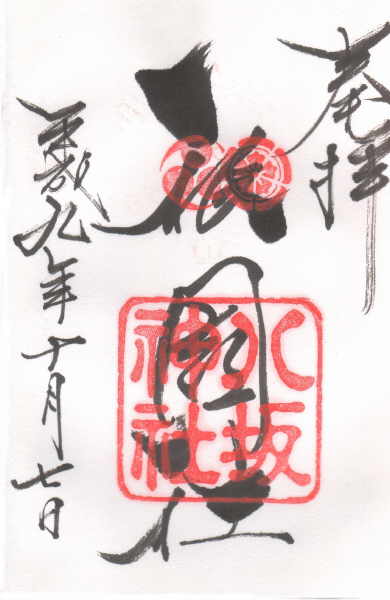 奉拝
祇園社
八坂
神社
平成九年十月七日